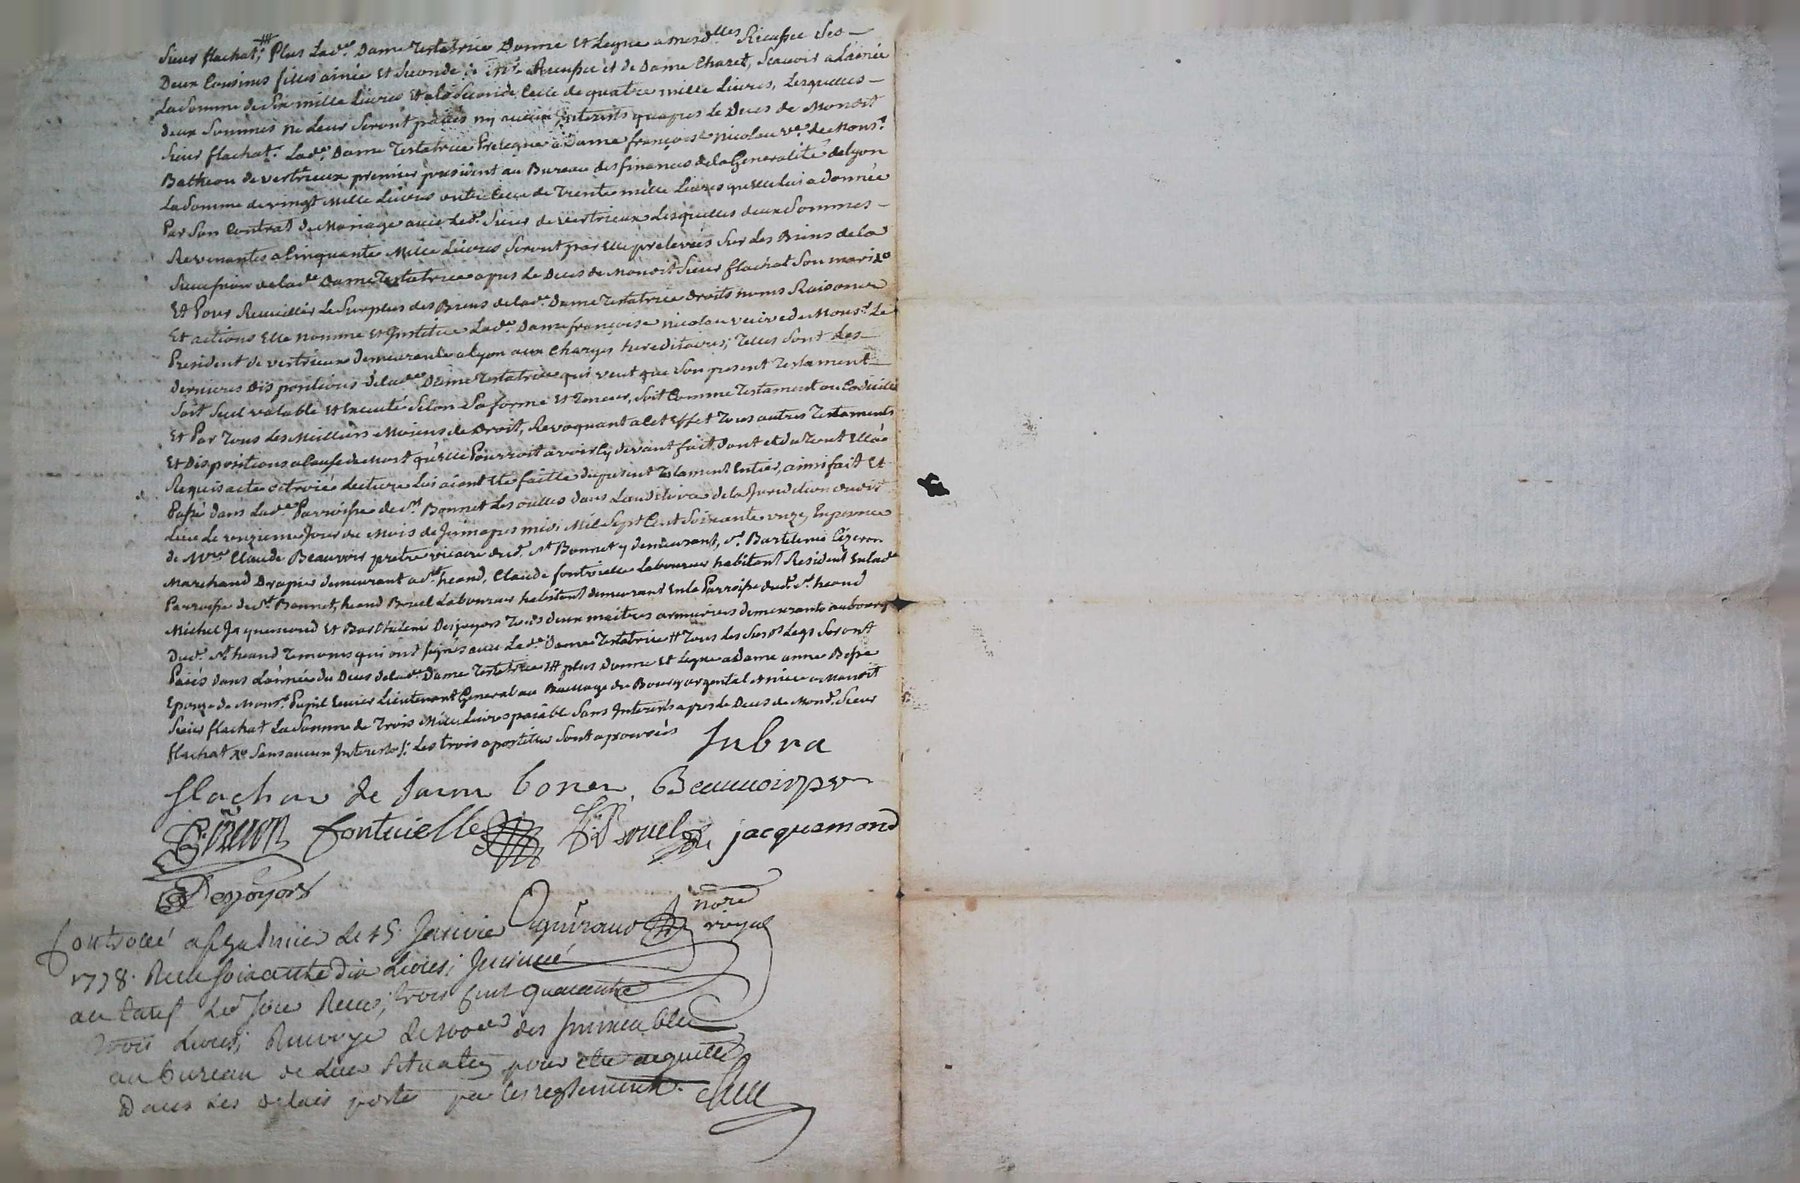 Sieur flachat, # Plus lad.e Dame Testatrice Donne Et Legue a mesd.lles Ses
Deux Cousines filles ainée Et Seconde de M.r et de Dame Charet, Scavoir a Lainée
La Somme de Six mille Livres Et a la Seconde Celle de quatre mille Livres, Lesquelles
deux Sommes ne Leur Seront païées ny aucun Interests qu'apres le Deces de Mondit
Sieur flachat. Lad.e Dame Testatrice Prelegue a Dame françoise Nicolau v.e de Mons.r
Batheon de vertrieux premier president au Bureau des finances de la Generalité de Lyon
La Somme de vingt Mille Livres outre Celle de Trente mille Livres qu'elle lui a donnée
Par Son Contrat de Mariage avec led.t Sieur de vertrieux Lesquelles deux Sommes
Revenantes a Cinquante Mille Livres Seront par Elle prelevées Sur les Biens de la
Succession de lad.e Dame Testatrice apres Le Deces de Mondit Sieur flachat Son mari
Et Pour Recueillir Le Surplus des Biens de lad.e Dame Testatrice droits noms Raisons
Et actions Elle nomme Et Institue Lad.e Dame françoise Nicolau veuve de Mons.r Le
President de vertrieux demeurante a Lyon aux Charges hereditaires; Telles Sont les
dernieres Dispositions de lad.e Dame Testatrice qui veut que Son present Testament
Soit Seul valable Et Executé Selon Sa forme Et Teneur, Soit Comme Testament ou Codicille
Et Par Tous les Meilleurs Moiens de Droit, Revoquant a Cet Effet Tous autres Testaments
Et Dispositions a Cause de Mort qu'elle Pourroit avoir Cy devant fait, Dont et du Tout Elle a
Requis acte octroié Lecture lui aiant Eté faitte du present Testament Entier, ainsi fait Et
Passé dans Lad.e Parroisse de S.t Bonnet Les oulles dans Lauditoire de la Jurisdiction dudit
Lieu Le onzieme Jour du Mois de Juin apres midi Mil Sept Cent Soixante onze, En presence
de M.re Claude Beauvoir prêtre vicaire dud.t S.t Bonnet y demeurant, S.r Bartelemi Cizeron
Marchand Drapier demeurant a S.t heand, Claude fontvielle Laboureur habitant Resident En lade
Parroisse de S.t Bonnet, heand Bouel Laboureur habitant demeurant En la Parroisse dud.t S.t heand
Michel Jaquemond Et Barthelemi Desjoyaux Tous deux maitres armuriers demeurants au bourg
Dud.t S.t heand Temoins qui ont Signés avec Lad.e Dame Testatrice # Tous les Susd.s Legs Seront
Païés dans L'année du Deces de lad.e Dame Testatrice # plus Donne Et Legue a Dame anne
Epouze de Mons.r Pupil Lieutenant General au Bailliage du Bourg argental Et niece a Mondit
Sieur flachat La Somme de Trois Mille Livres païable Sans Interests apres Le Deces de Mond.t Sieur
flachat Sans aucun Interests. Les trois apostilles Sont aprouvées Jubna
flachat de Saint bonet Beauvoir ptr
Cizeron fontvielle Bouel jacquemond
Desjoyaux
not.re
royal
Controllé a St Galmier le 15 Janvier
1778. Receu Soixante dix Livres; Insinué
au tarif led Jour Receu; trois Cent quarante
trois Livres; Renvoyé des Immeubles
au bureau de leur situation pour etre acquitté
Dans les delais portés par les reglements.